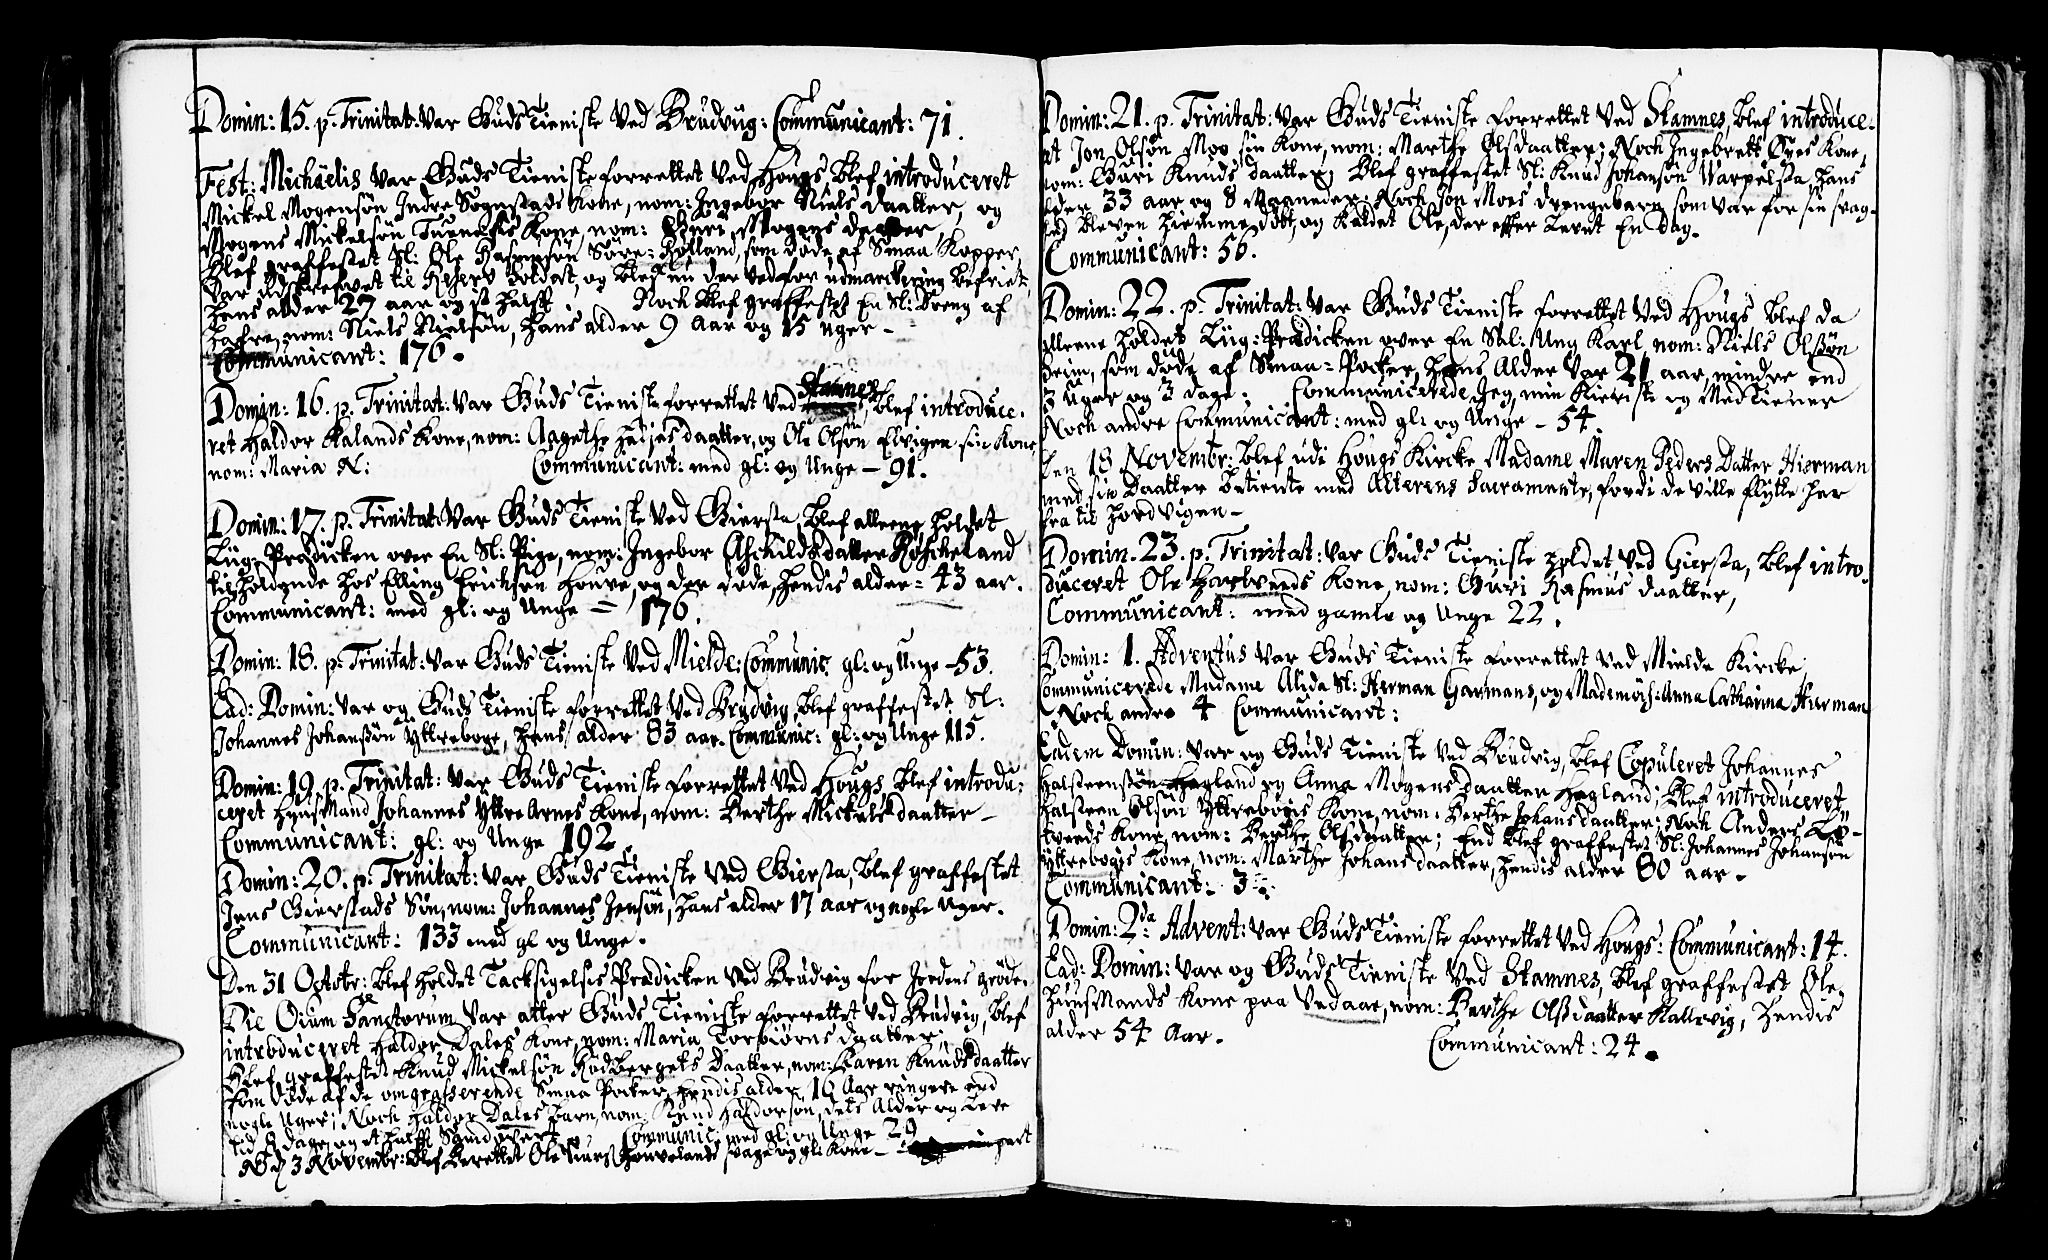 Domin: 15. p. Trinitat: var Guds Tieniste ved Brudvig: Communicant: 71.
Fest: Michaëlis var Guds Tieniste forrettet ved Hougs blef introduceret
Mickel Mogensøn Indre Sognstads Kone, nom: Ingebor Niels daatter, og
Mogens Mickelsøn Kone, nom: Guri Mogens daatter,
blef graffestet Sl: Ole Rasmusøn Søre-Rolland, som døde af Smaa Kopper,
var udskrefvet til Reserv Soldat, og blef nu der ved for udmarchering befriet,
hans alder 27 aar og it halft. Noch blef graffestet En Sl: Dreng af
Hafre, nom: Niels Nielsøn, hans alder 9 aar og 15 uger-
Communicant: 176.
Domin: 16. p. Trinitat: var Guds Tieniste forrettet ved Stamnes, blef introduce-
ret Haldor Kalands Kone, nom: Aagethe daatter, og Ole Olsøn Elvigen sin Kone
nom: Maria N: Communicant: med gl: og Unge - 91.
Domin: 17. p. Trinitat: var Guds Tieniste ved Giersta, blef alleene holdet
Liig-Prædicken over En Sl: Pige, nom: Ingebor Aschilds daatter
tilholdende hos Elling Erichsøn Houre, og der døde, hendis alder = 43 aar.
Communicant: med gl: og Unge = 176.
Domin: 18. p. Trinitat: var Guds Tieniste ved Mielde: Communic: gl: og Unge - 53.
Ead: Domin: var og Guds Tieniste forrettet ved Brudvig, blef graffestet Sl:
Johannes Johansøn Yttreboge, hans alder 83 aar. Communic: gl: og Unge 115.
Domin: 19. p. Trinitat: var Guds Tieniste forrettet ved Hougs, blef introdu-
ceret Huusmand Johannes Yttre Arnes Kone, nom: Berthe Mickels daatter-
Communicant: gl: og Unge 192.
Domin: 20. p. Trinitat: var Guds Tieniste ved Giersta, blef graffestet
Jens Gierstads Søn, nom: Johannes Jensøn, hans alder 17 aar og nogle Uger.
Communicant: 133 med gl og Unge.
Den 31 Octobr: blef holdet Tacksigelses Prædicken ved Brudvig for Jordens grøde.
Die Oium Sanctorum var atter Guds Tieniste forrettet ved Brudvig, blef
introduceret Haldor Dales Kone, nom: Maria Torbiørns daatter,
blef graffestet Knud Mickelsøn Daatter, nom: Karen Knuds daatter
som døde af de omgrasserende Smaa Pocker, hendis alder 16 Aar ringere end
nogle Uger; Noch Haldor Dales barn, nom: Knud Haldorsøn, dets Alder og Leve
tid 8 dage, og et halft Communic: med gl: og Unge 29
NB d 3 Novembr: blef berettet Ole svage og gl: Kone-
Domin: 21. p. Trinitat: var Guds Tieniste forrettet ved Stamnes, blef introduce-
ret Jon Olsøn Moo sin Kone, nom: Marthe Olsdaatter; Noch Ingebrett Øyes Kone,
nom: Guri Knuds daatter; blef graffestet Sl: Knud Johansøn Warpelsta, hans
alder 33 aar og 8 Maaneder; Noch Jon Moes drengebarn som var for sin svag-
hed bleven hiemme døbt, og kaldet Ole, der effter levet En dag.
Communicant: 56.
Domin: 22. p. Trinitat: var Guds Tieniste forrettet ved Hougs blef da
alleene holdet Liig-Prædicken over En Sal: Ung Karl nom: Niels Olssøn
som døde af Smaa-Pocker, hans Alder var 21 aar, mindre end
3 Uger og 3 dage; Communicerede Jeg, min Kieriste og Medtiener
Noch andre Communicant: med gl: og Unge - 54.
Den 18 Novembr: blef udi Hougs Kircke Madame Maren Peders Datter Hierman
med sin Daatter betiente med Alterens Sacramente, fordi de ville flytte her
fra til Hordvigen-
Domin. 23. p. Trinitat: var Guds Tieniste holdet ved Giersta, blef intro-
duceret Ole Kone, nom: Guri Rasmus daatter,
Communicant: med gamle og Unge 22.
Domin: 1. Adventus var Guds Tieniste forrettet ved Mielde Kircke,
Communicerede Madame Alida Sl: Herman Garmans, og Mademois: Anna Catharina Hierman
Noch andre 4 Communicant:
Eadem Domin: var og Guds Tieniste ved Brudvig, blef Copuleret Johannes
Halsteensøn Hagland og Anna Mogens daatter Hagland; blef introduceret
Halsteen Olsøn Yttrebogis Kone, nom: Berthe Johans daatter; Noch Anders Lö-
tveeds Kone, nom: Berthe Olsdaatter; End blef graffestet Sl: Johannes Johansøn
Yttrebogis Kone, nom: Marthe Johans daatter, hendis alder 80 aar.
Communicant: 3
Domin: 2da Advent: var Guds Tieniste forrettet ved Hougs: Communicant: 14.
Ead: Domin: var og Guds Tieniste ved Stamnes, blef graffestet Ole
Huusmands Kone paa Vedaae, nom: Berthe Olssdaatter Kallevig, hendis
alder 54 Aar. Communicant: 24.